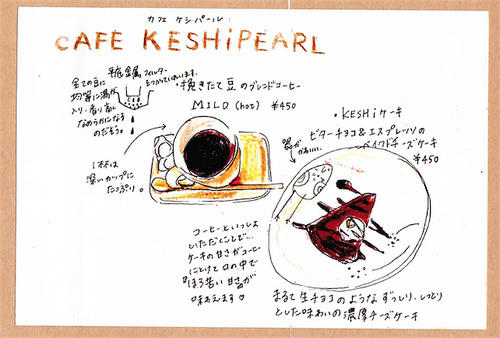 カフェ ケシパール
CAFE KESHiPEARL
全ての豆に
均等に湯が
入り、香り高く
なめらかになる
のだそう。
フィルター
・挽きたて豆のブレンドコーヒー
MILD (hot) ¥450
1杯は
深いカップに
たっぷり。
・KESHiケーキ
ビターチョコ&エスプレッソの
ベイクドチーズケーキ
¥450
器が
かわいい。
コーヒーといっしょに
いただくことで…
ケーキの甘さがコーヒー
にとけて口の中で
『ほろ苦い甘さ』が
味わえます♡
まるで生チョコのような ずっしり、しっとり
とした味わいの濃厚チーズケーキ